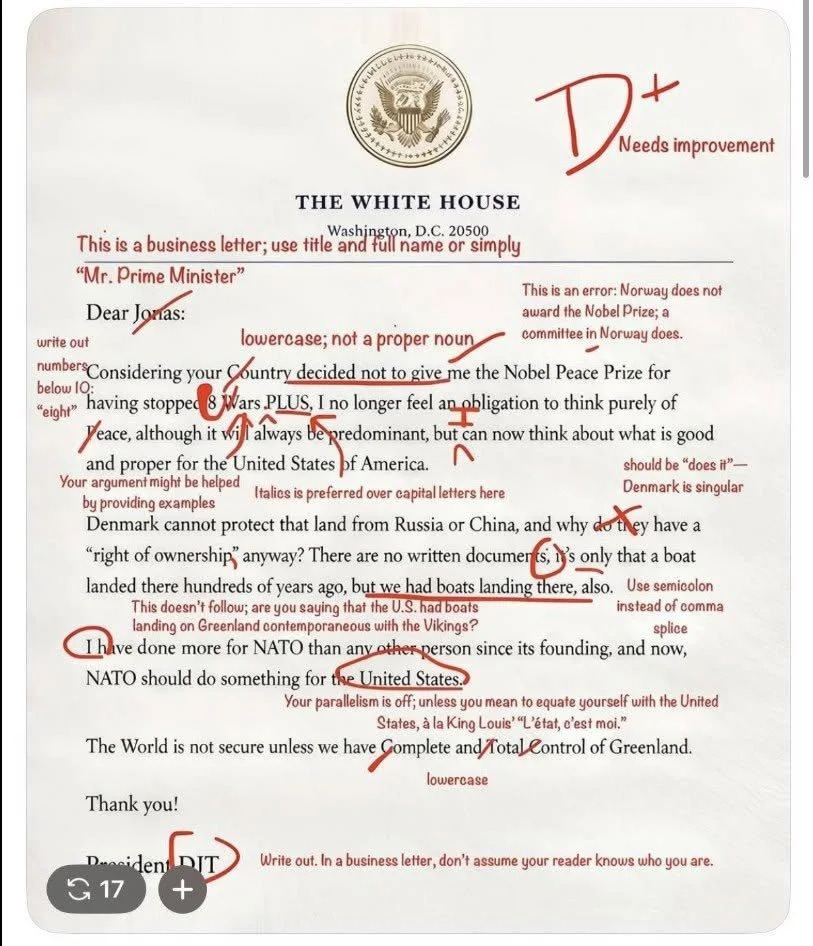 D+
Needs improvement
THE WHITE HOUSE
Washington, D.C. 20500
This is a business letter; use title and full name or simply
“Mr. Prime Minister”
Dear Jonas:
This is an error: Norway does not
award the Nobel Prize; a
committee in Norway does.
write out
numbers
below 10:
“eight”
lowercase; not a proper noun
Considering your Country decided not to give me the Nobel Peace Prize for
having stopped 8 Wars PLUS, I no longer feel an obligation to think purely of
I
Peace, although it will always be predominant, but can now think about what is good
and proper for the United States of America.
Your argument might be helped
by providing examples
Italics is preferred over capital letters here
should be “does it”—
Denmark is singular
Denmark cannot protect that land from Russia or China, and why do they have a
“right of ownership” anyway? There are no written documents, it’s only that a boat
landed there hundreds of years ago, but we had boats landing there, also.
Use semicolon
instead of comma
splice
This doesn’t follow; are you saying that the U.S. had boats
landing on Greenland contemporaneous with the Vikings?
I have done more for NATO than any other person since its founding, and now,
NATO should do something for the United States.
Your parallelism is off; unless you mean to equate yourself with the United
States, à la King Louis’ “L’état, c’est moi.”
The World is not secure unless we have Complete and Total Control of Greenland.
lowercase
Thank you!
President DJT
Write out. In a business letter, don’t assume your reader knows who you are.
17